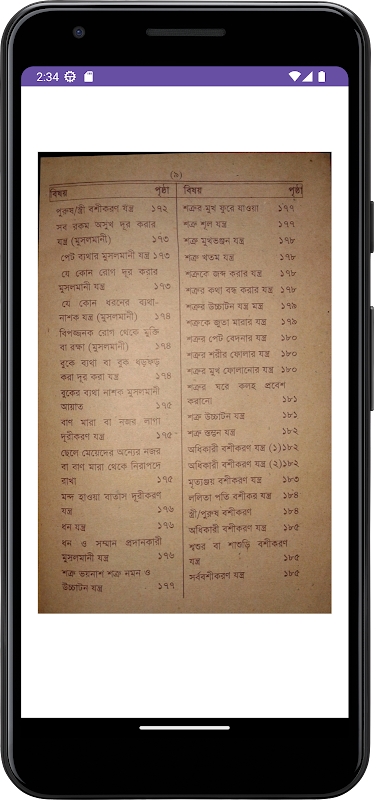 2:34
(৯)
বিষয় পৃষ্ঠা
পুরুষ/স্ত্রী বশীকরণ যন্ত্র ১৭২
সব রকম অসুখ দূর করার
যন্ত্র (মুসলমানী) ১৭৩
পেট ব্যথার মুসলমানী যন্ত্র ১৭৩
যে কোন রোগ দূর করার
মুসলমানী যন্ত্র ১৭৩
যে কোন ধরনের ব্যথা-
নাশক যন্ত্র (মুসলমানী) ১৭৪
বিপজ্জনক রোগ থেকে মুক্তি
বা রক্ষা (মুসলমানী) ১৭৪
বুকে ব্যথা বা বুক ধড়ফড়
করা দূর করা যন্ত্র ১৭৪
বুকের ব্যথা নাশক মুসলমানী
আয়াত ১৭৫
বাণ মারা বা নজর লাগা
দূরীকরণ যন্ত্র ১৭৫
ছেলে মেয়েদের অন্যের নজর
বা বাণ মারা থেকে নিরাপদে
রাখা ১৭৫
মন্দ হাওয়া বাতাস দূরীকরণ
যন্ত্র ১৭৬
ধন যন্ত্র ১৭৬
ধন ও সম্মান প্রদানকারী
মুসলমানী যন্ত্র ১৭৬
শত্রু ভয়নাশ শত্রু নমন ও
উচ্চাটন যন্ত্র ১৭৭
বিষয় পৃষ্ঠা
শত্রুর মুখ ফুরে যাওয়া ১৭৭
শত্রু শূল যন্ত্র ১৭৭
শত্রু মুখভঞ্জন যন্ত্র ১৭৮
শত্রু খতম যন্ত্র ১৭৮
শত্রুকে জব্দ করার যন্ত্র ১৭৮
শত্রুর কথা বন্ধ করার যন্ত্র ১৭৮
শত্রুর উচ্চাটন যন্ত্র মন্ত্র ১৭৯
শত্রুকে জুতা মারার যন্ত্র ১৭৯
শত্রুর পেট বেদনার যন্ত্র ১৮০
শত্রুর শরীর ফোলার যন্ত্র ১৮০
শত্রুর মুখ ফোলানোর যন্ত্র ১৮০
শত্রুর ঘরে কলহ প্রবেশ
করানো ১৮১
শত্রু উচ্চাটন যন্ত্র ১৮১
শত্রু স্তম্ভন যন্ত্র ১৮২
অধিকারী বশীকরণ যন্ত্র (১) ১৮২
অধিকারী বশীকরণ যন্ত্র (২) ১৮২
মৃত্যুঞ্জয় বশীকরণ যন্ত্র ১৮৩
ললিতা পতি বশীকর যন্ত্র ১৮৪
স্ত্রী/পুরুষ বশীকরণ ১৮৪
অধিকারী বশীকরণ যন্ত্র ১৮৫
শ্বশুর বা শাশুড়ি বশীকরণ
যন্ত্র ১৮৫
সর্ববশীকরণ যন্ত্র ১৮৫